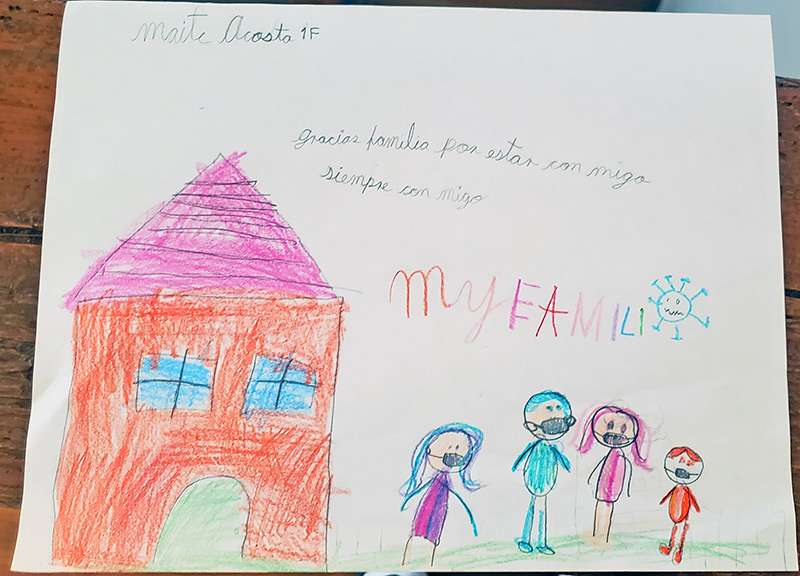 Maite Acosta 1F
gracias familia por estar con migo
siempre con migo
MY FAMILI